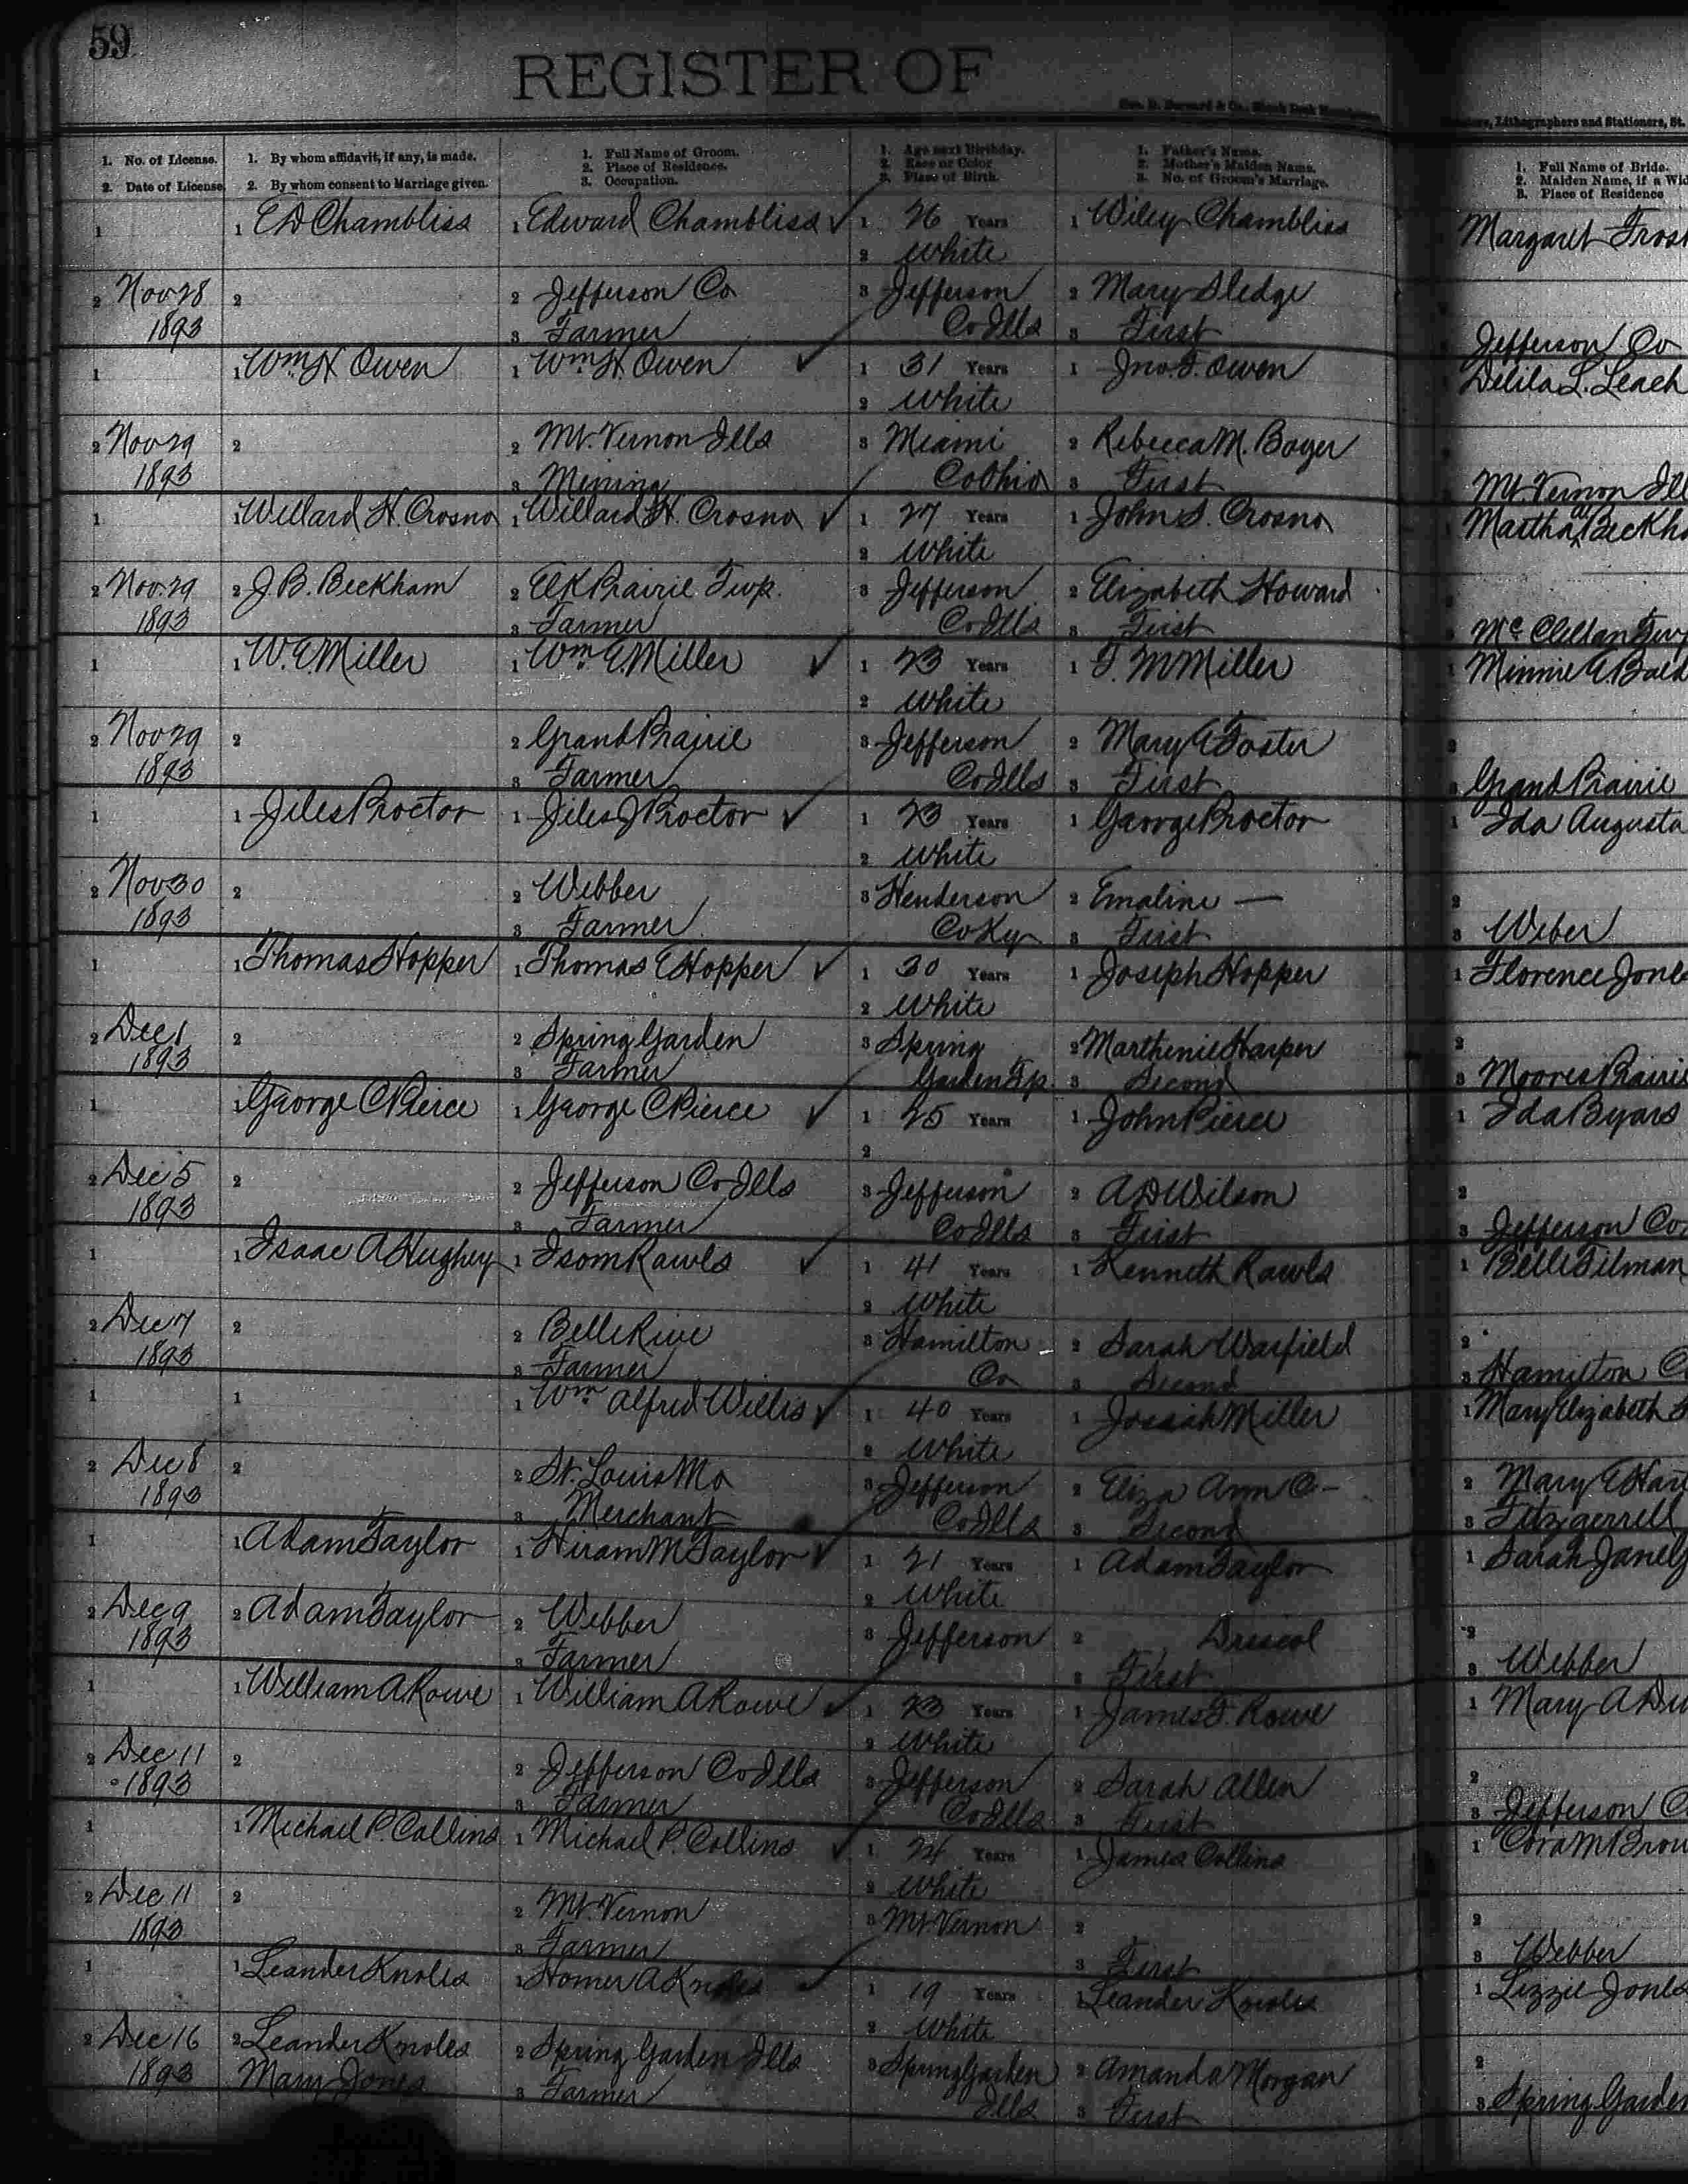 59
REGISTER OF
Geo. D. Barnard & Co., Blank Book
Lithographers and Stationers, St.
1. No. of License.
2. Date of License.
1. By whom affidavit, if any, is made.
2. By whom consent to Marriage given.
1. Full Name of Groom.
2. Place of Residence.
3. Occupation.
1. Age next Birthday.
2. Race or Color
3. Place of Birth.
1. Father's Name.
2. Mother's Maiden Name.
3. No. of Groom's Marriage.
1. Full Name of Bride.
2. Maiden Name, if a Wid
3. Place of Residence
1 1 E D Chambliss 1 Edward Chambliss ✓ 1 26 Years 1 Wiley Chambliss Margaret Frost
2 White
2 Nov 28 2 2 Jefferson Co 3 Jefferson 2 Mary Sledge
1893 3 Farmer Co Ills 3 First Jefferson Co
1 1 Wm H Owen 1 Wm H. Owen ✓ 1 31 Years 1 Jno. F. Owen Delila L. Leach
2 White
2 Nov 29 2 2 Mt. Vernon Ills 3 Miami 2 Rebecca M. Boyer
1893 3 Mining Co Ohio 3 First Mt Vernon Ill
1 1 Willard H. Crosno 1 Willard H. Crosno ✓ 1 27 Years 1 John S. Crosno Martha Beckha
2 White
2 Nov. 29 2 J. B. Beckham 2 Elk Prairie Twp. 3 Jefferson 2 Elizabeth Howard
1893 3 Farmer Co Ills 3 First Mc Clellan Twp
1 1 W. E Miller 1 Wm E Miller ✓ 1 23 Years 1 F. M Miller 1 Minnie E Bald
2 White
2 Nov 29 2 2 Grand Prairie 3 Jefferson 2 Mary E Foster 2
1893 3 Farmer Co Ills 3 First 3 Grand Prairie
1 1 Jiles Proctor 1 Jiles J Proctor ✓ 1 23 Years 1 George Proctor 1 Ida Augusta
2 White
2 Nov 30 2 2 Webber 3 Henderson 2 Emaline — 2
1893 3 Farmer Co Ky 3 First 3 Weber
1 1 Thomas Hopper 1 Thomas E Hopper ✓ 1 30 Years 1 Joseph Hopper 1 Florence Jone
2 White
2 Dec 1 2 2 Spring Garden 3 Spring 2 Marthenie Harper 2
1893 3 Farmer Garden Tp. 3 Second 3 Moores Prairie
1 1 George C Pierce 1 George C Pierce ✓ 1 25 Years 1 John Pierce 1 Ida Byars
2
2 Dec 5 2 2 Jefferson Co Ills 3 Jefferson 2 A D Wilson 2
1893 3 Farmer Co Ills 3 First 3 Jefferson Co
1 1 Isaac A Hughey 1 Isom Rawls ✓ 1 41 Years 1 Kenneth Rawls 1 Belle Tilman
2 White
2 Dec 7 2 2 Belle Rive 3 Hamilton 2 Sarah Warfield 2
1893 3 Farmer Co 3 Second 3 Hamilton C
1 1 1 Wm Alfred Willis ✓ 1 40 Years 1 Josiah Miller 1 Mary Elizabeth
2 White
2 Dec 8 2 2 St. Louis Mo 3 Jefferson 2 Eliza Ann C— 2 Mary E Har
1893 3 Merchant Co Ills 3 Second 3 Fitzgerrell
1 1 Adam Taylor 1 Hiram M Taylor ✓ 1 21 Years 1 Adam Taylor 1 Sarah Jane
2 White
2 Dec 9 2 Adam Taylor 2 Webber 3 Jefferson 2 Driscol 2
1893 3 Farmer 3 First 3 Webber
1 1 William A Rowe 1 William A Rowe ✓ 1 23 Years 1 James F. Rowe 1 Mary A Du
2 White
2 Dec 11 2 2 Jefferson Co Ills 3 Jefferson 2 Sarah Allen 2
1893 3 Farmer Co Ills 3 First 3 Jefferson C
1 1 Michael P. Collins 1 Michael P. Collins ✓ 1 24 Years 1 James Collins 1 Cora M Brow
2 White
2 Dec 11 2 2 Mt. Vernon 3 Mt. Vernon 2 2
1893 3 Farmer 3 First 3 Webber
1 1 Leander Knoles 1 Homer A Knoles ✓ 1 19 Years 1 Leander Knoles 1 Lizzie Jones
2 White
2 Dec 16 2 Leander Knoles 2 Spring Garden Ills 3 Spring Garden 2 Amanda Morgan 2
1893 Mary Jones 3 Farmer Ills 3 First 3 Spring Garden